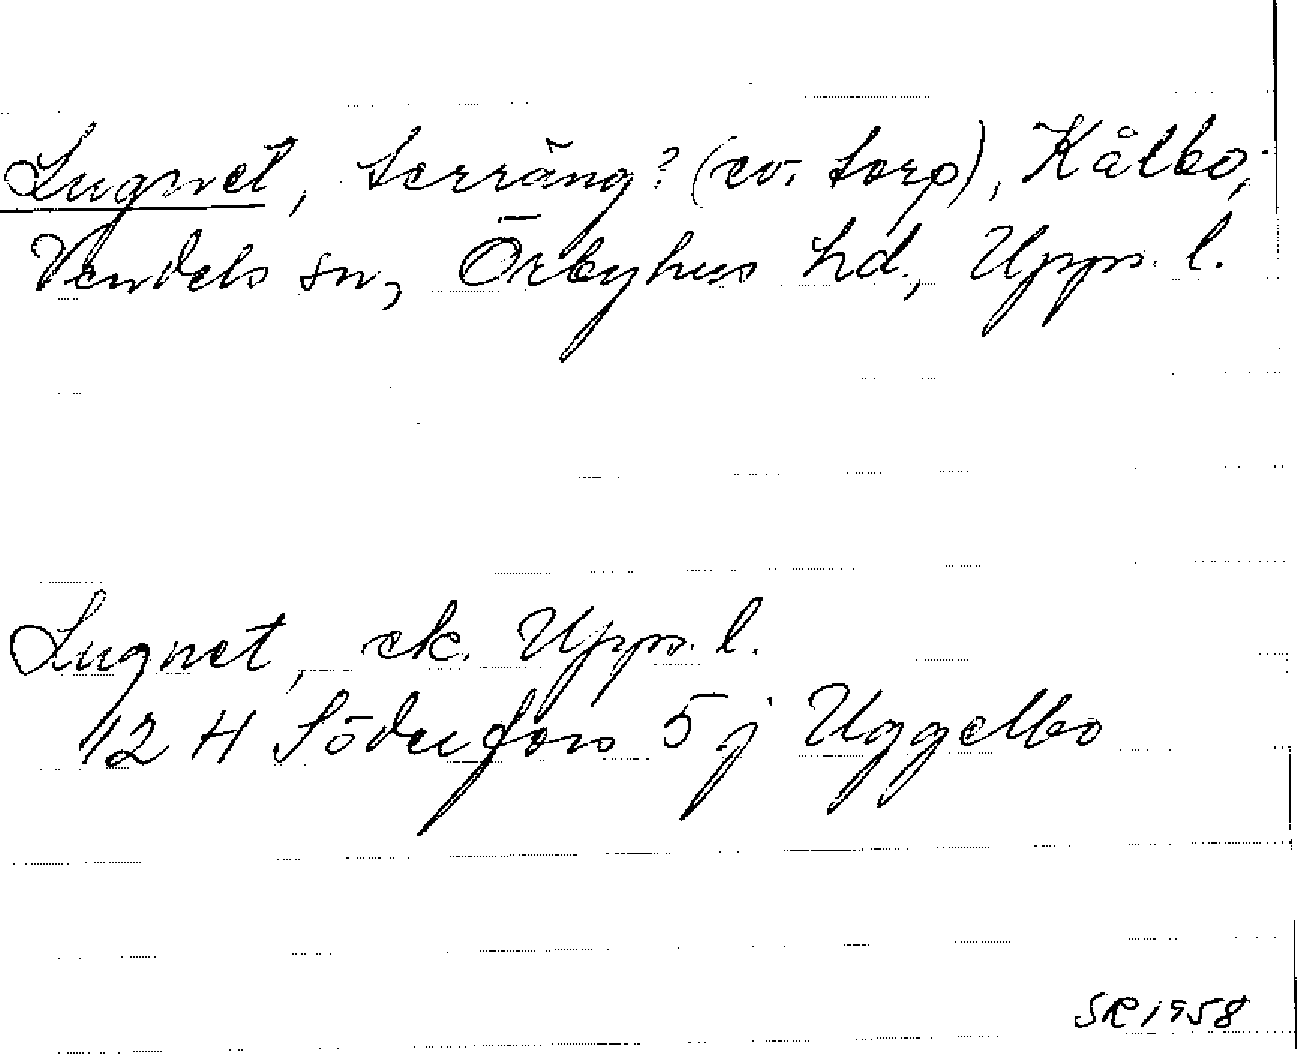 Lugnet, terräng? (ev. torp), Kålbo,
Vendels sn, Örbyhus hd., Upps. l.
Lugnet, ek. Upps. l.
12 H Söderfors 5 j Uggelbo
SR 1958